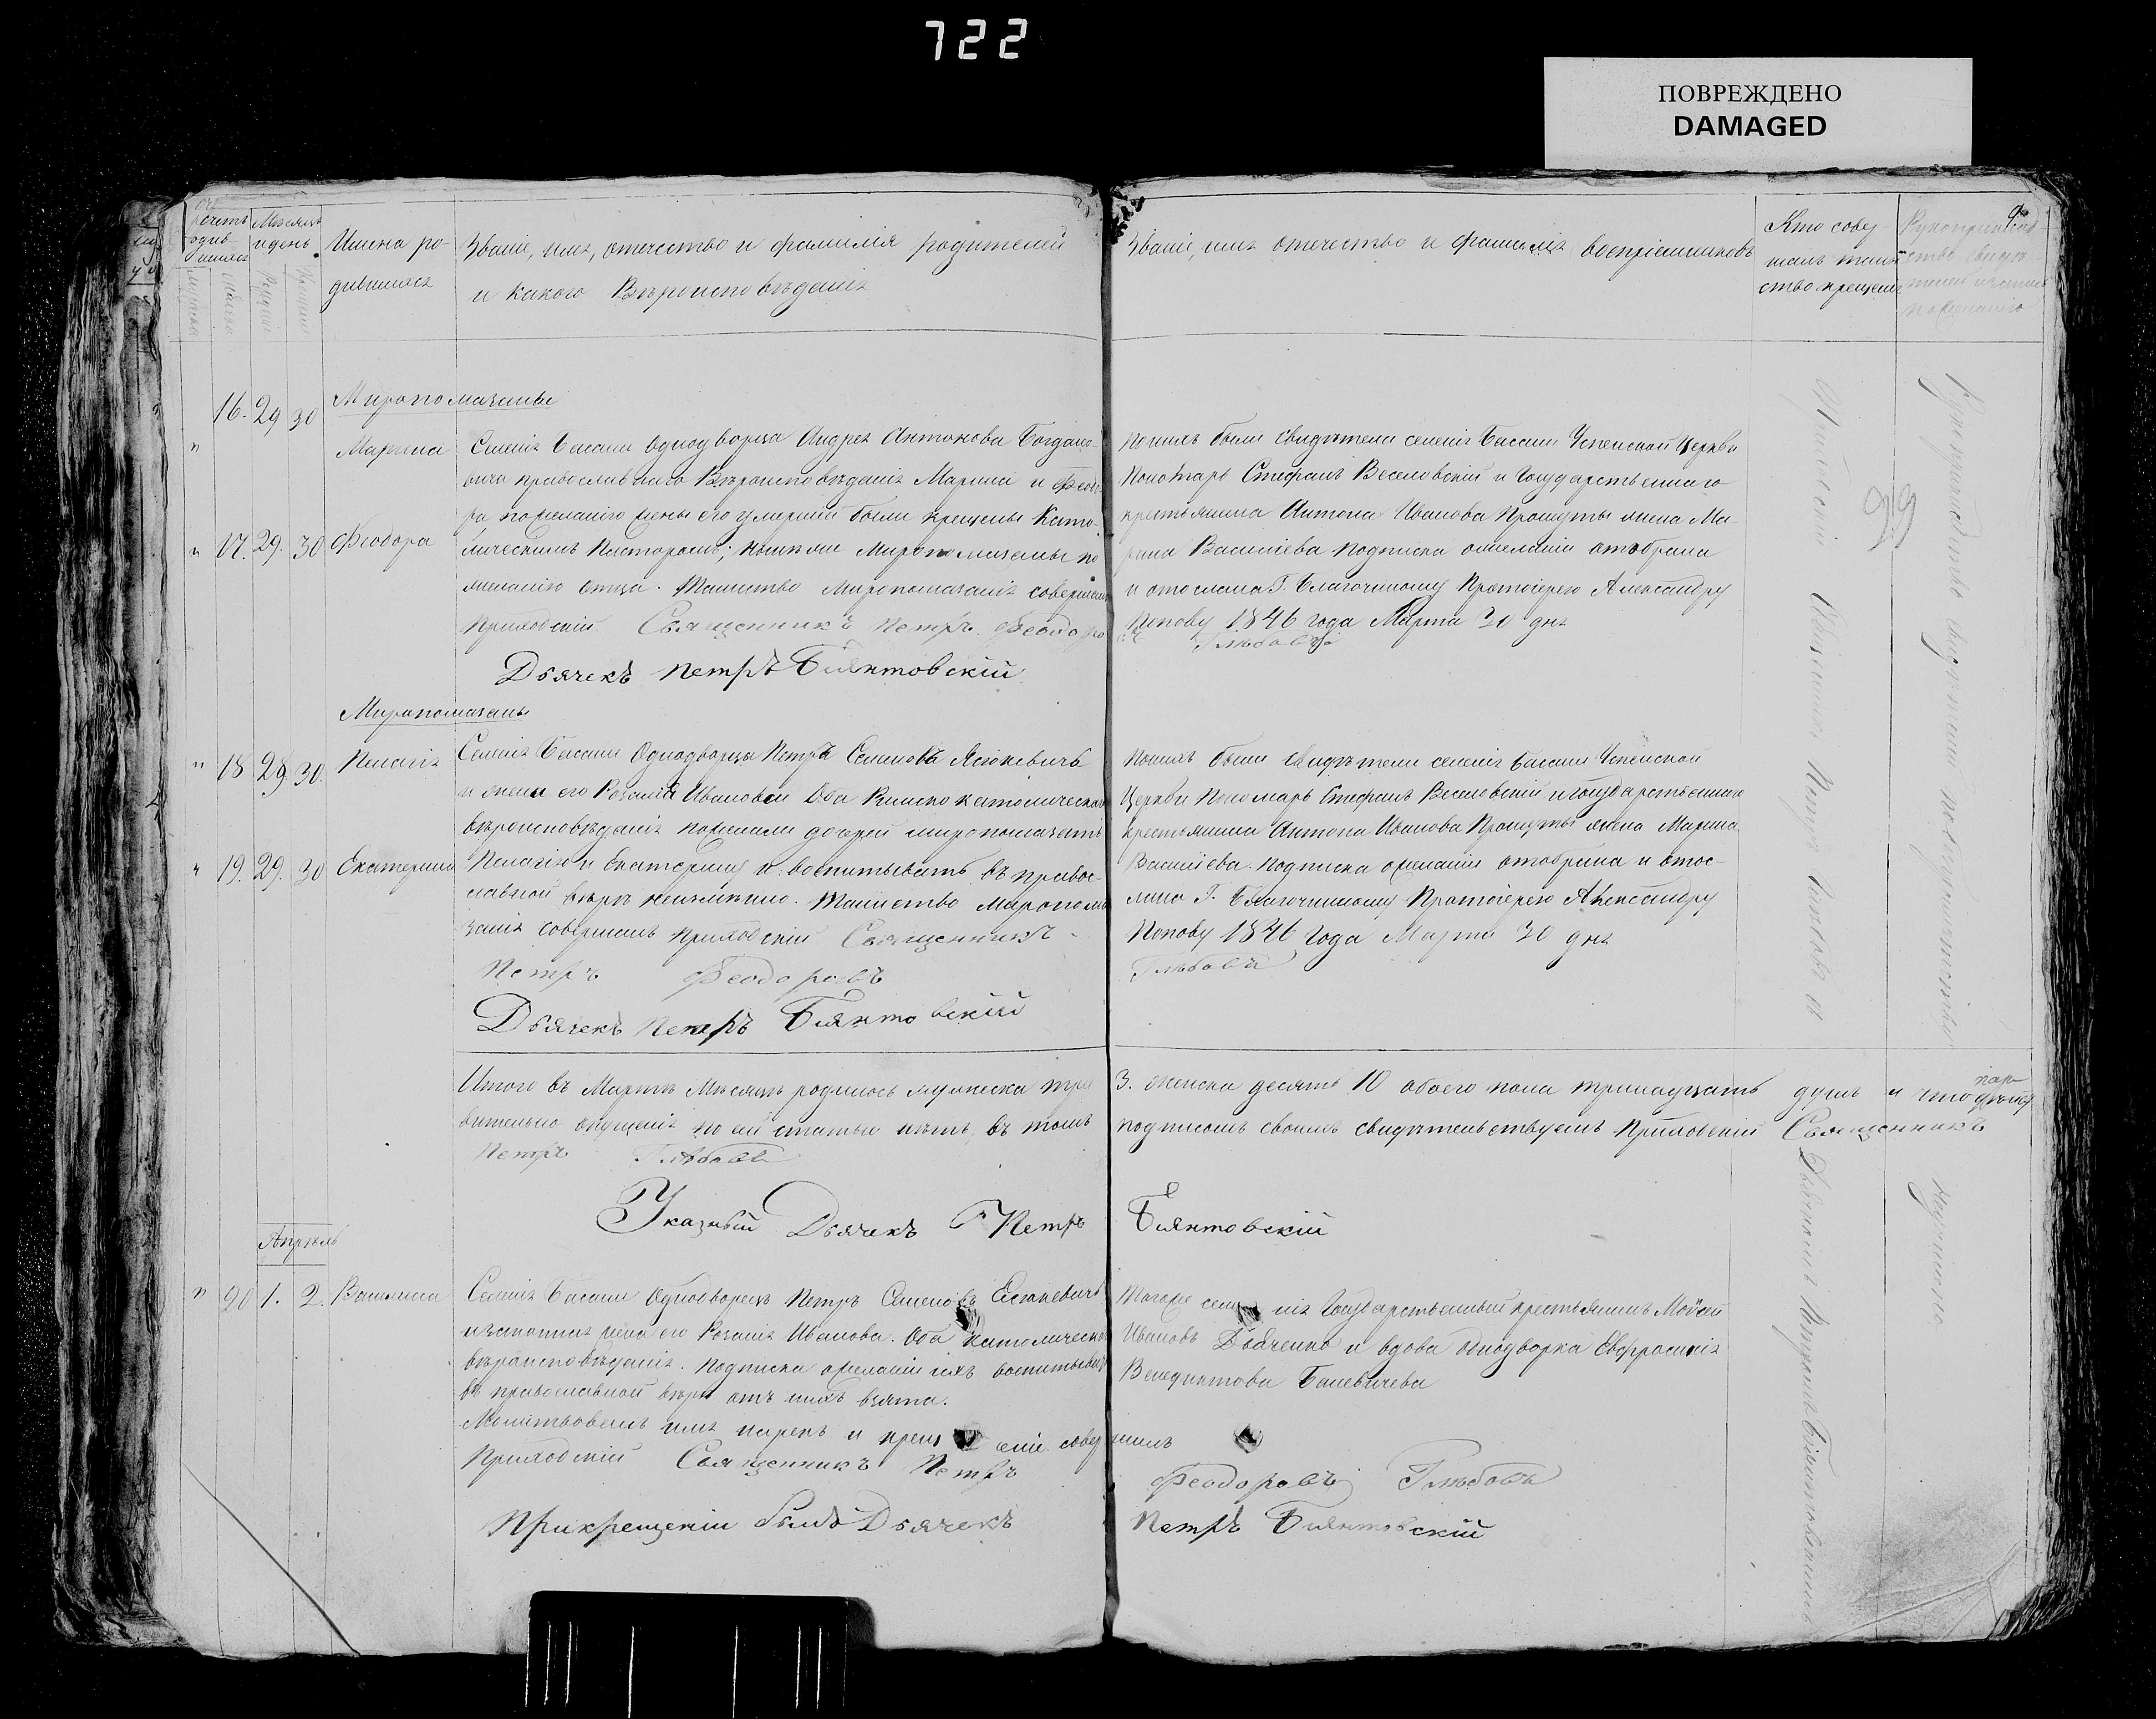 722
ПОВРЕЖДЕНО
DAMAGED
счетъ Мѣсяцъ
и день
Имена ро-
дившихся
Званіе, имя, отечество и фамилія родителей
и какого Вѣроисповѣданія
Званіе, имя отечество и фамилія воспріемниковъ
Кто совер
шалъ таин
ство крещенія
Рукоприклад
ство свидѣ
телей
по желанію
9
16. 29 30 Миропомазаны
" Марина Селенія Басани однодворца Андрея Антонова Богдано-
вича православнаго Вѣроисповѣданія Марина и Феодо
ра по желанію жены его умершей были крещены Като-
" 17. 29. 30 Феодора лическимъ Пасторомъ; нынѣ Миропомазаны по
желанію отца. Таинство Миропомазанія совершилъ
Приходскій Священникъ Петръ Феодоро
Дьячекъ Петръ Биянтовскій
по нихъ были свидѣтели селенія Басани Успенской Церкви
Пономарь Стефанъ Веселовскій и Государственнаго
крестьянина Антона Иванова Прокуты жена Ма-
рина Василіева подписка о желаніи отобрана
и отослана Г. Благочинному Протоіерею Александру
Попову 1846 года Марта 30 дня
Глѣбовъ
99
Миропомазаны
" 18 29 30. Пелагія Селенія Басани Однодворца Петръ Семеновъ Ясюкевичъ
и жена его Розалія Ивановой Оба Римско католическаго
вѣроисповѣданія пожелали дочерей миропомазать
" 19. 29. 30 Екатерина Пелагію и Екатерину и воспитывать въ правос-
славной вѣрѣ неизмѣнно. Таинство Миропома
занія совершилъ Приходскій Священникъ
Петръ Феодоровъ
Дьячекъ Петръ Биянтовскій
по нихъ были свидѣтели селенія Басани Успенской
Церкви Пономарь Стефанъ Веселовскій и Государственнаго
крестьянина Антона Иванова Прокуты жена Марина
Василіева. Подписка о желаніи отобрана и отос-
лана Г. Благочинному Протоіерею Александру
Попову 1846 года Марта 30 дня
Глѣбовъ
Итого въ Мартѣ Мѣсяцѣ родилось мужеска три 3. женска десять 10 обоего пола тринадцать душъ и что дѣйст
вительно опущенія по сей статьи нѣтъ, въ томъ подписомъ своимъ свидѣтельствуемъ Приходскій Священникъ
Петръ Глѣбовъ
Указный Дьячекъ Петръ Биянтовскій
Апрѣль
" 20 1. 2. Василиса Селенія Басани Однодворецъ Петръ Семеновъ Есюкевичъ
и законная жена его Розалія Иванова. Оба католическаго
вѣроисповѣданія. Подписка о желаніи ихъ воспитывать
въ православной вѣрѣ отъ нихъ взята.
Молитвовалъ имя нарекъ и крещеніе совершилъ
Приходскій Священникъ Петръ Феодоровъ Глѣбовъ
При крещеніи былъ Дьячекъ Петръ Биянтовскій
Тогоже селенія Государственный крестьянинъ Мойсей
Ивановъ Дьяченко и вдова однодворка Евфросинія
Венедиктова Баневичева